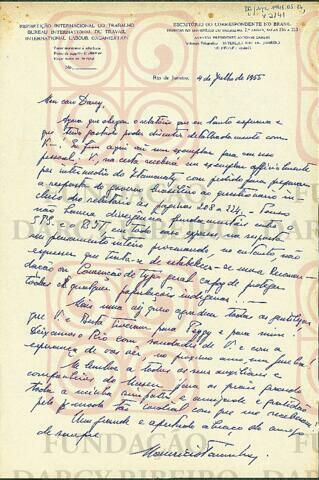 REPARTIÇÃO INTERNACIONAL DO TRABALHO
BUREAU INTERNATIONAL DU TRAVAIL
INTERNATIONAL LABOUR ORGANISATION
ESCRITÓRIO DO CORRESPONDENTE NO BRASIL
Rio de Janeiro, 4 de Julho de 1955
Meu caro Darcy,
Agora que chegou o relatório que eu tanto esperava e
que
discutir detalhadamente com
V.
aqui vai um exemplar para seu uso
pessoal. V. na certa receberá um exemplar oficialmente
por intermédio do Itamaraty com pedido para preparar
a resposta do governo brasileiro ao questionário in-
cluso do relatório às páginas 208 a 224.
não haverá divergências fundamentais entre o
SPI e o BIT
seu pensamento inteiro procurando, no entanto, não
esquecer que trata-se de estabelecer-se uma Recomen-
dação ou Convenção de tipo geral capaz de proteger
todas e quaisquer populações indígenas!
Mais uma vez quero agradecer todas as gentilezas
que V. e Berta tiveram para Peggy e para mim.
Deixamos o Rio com saudades de V. e com a
esperança de vos ver no próximo ano em Genebra!
Me lembre a todos os seus auxiliares e
companheiros do Museu
toda a minha simpatia e amizade e gratidão
pelo modo tão cordial com que me receberam!
Um grande e apertado abraço do amigo
de sempre
FUNDAÇÃO
DARCY RIBEIRO